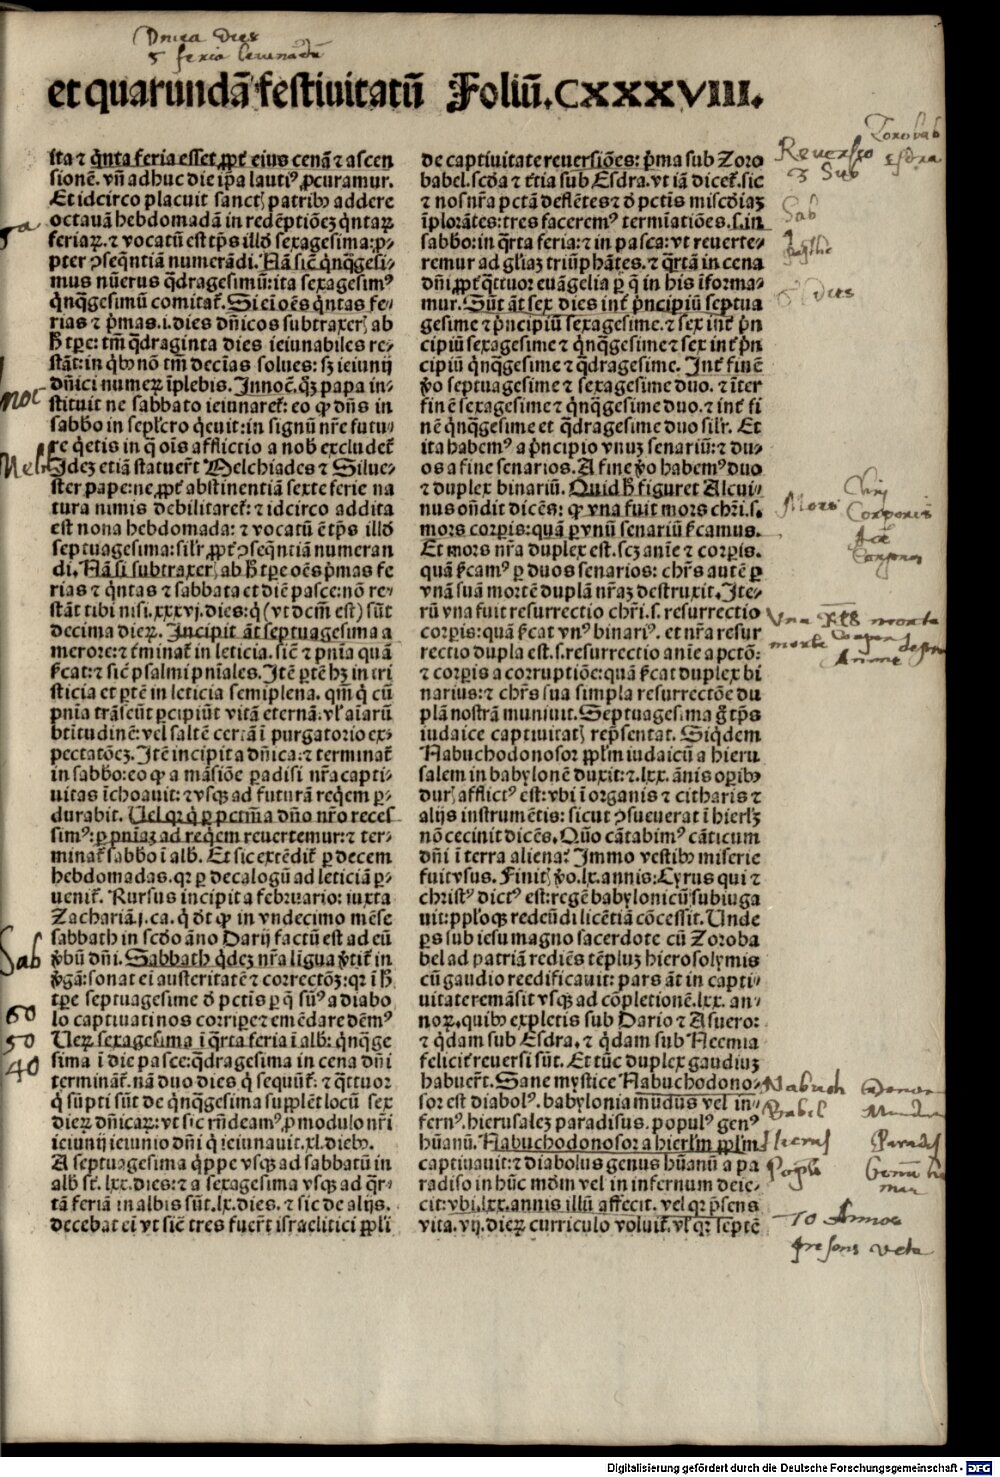 Dnica Dies
5 feria
et quarundā festiuitatū Foliū.CXXXVIII.
sta ⁊ q̇nta feria esset ꝓpt̓ eius cenā ⁊ ascen
sionē. vñ adhuc die ip̄a lautiꝰ ꝓcuramur.
Et idcirco placuit sanctꝭ patribꝰ addere
octauā hebdomadā in redēptiōeꝫ q̇ntaꝝ
feriaꝝ. ⁊ vocatū est tp̄s illd̄ sexagesima: ꝓ⸗
pter ꝯseq̄ntiā numerādi. Nā sic̄ q̇nq̄gesi⸗
mus nūerus q̄dragesimū: ita sexagesimꝰ
q̇nq̄gesimū comitat̄. Si eī oēs q̇ntas fe⸗
rias ⁊ p̄mas .i. dies dñicos subtraxerꝭ ab
h̄ tꝑe: tm̄ q̄draginta dies ieiunabiles re⸗
stāt: in q̇bꝰ nō tm̄ decīas solues: sꝫ ieiunij
dñici numeꝝ īplebis. Innoc̄. q̇ꝫ papa in⸗
stituit ne sabbato ieiunaret̄: eo ꝙ dñs in
sabb̄o in sepl̄cro q̇euit: in signū nr̄e futu⸗
re q̇etis in q̄ oīs afflictio a nob̄ excludet̄
Idēꝫ etiā statuer̄t Melchiades ⁊ Silue⸗
ster pape: ne ꝓpt̓ abstinentiā sexte ferie na
tura nimis debilitaret̄: ⁊ idcirco addita
est nona hebdomada: ⁊ vocatū ē tp̄s illd̄
septuagesima: sil̄r ꝓpt̓ ꝯseq̄ntiā numeran
di. Nā si subtraxerꝭ ab h̄ tꝑe oēs p̄mas fe
rias ⁊ q̇ntas ⁊ sabbata et diē pasce: nō re⸗
stāt tibi nisi .xxxvj. dies: q̇ (vt dc̄m est) sūt
decima dieꝝ. Incipit āt septuagesima a
merore: ⁊ t̓minat̄ in leticia. sic̄ ⁊ pn̄ia quā
s̄cat: ⁊ sic̄ psalmi pn̄iales. Itē ꝑtē hꝫ in tri
sticia et ꝑtē in leticia semiplena. qm̄ q̇ cū
pn̄ia trāseūt ꝑcipiūt vitā eternā: vl̓ aīarū
btītudinē: vel saltē certā ī purgatorio ex⸗
pectatōeꝫ. Itē incipit a dñica: ⁊ terminat̄
in sabb̄o: eo ꝙ a māsiōe ꝑadisi nr̄a capti⸗
uitas īchoauit: ⁊ vsqꝫ ad futurā req̇em ꝑ⸗
durabit. Uel qꝛ q̇ ꝑ pctm̄ a dño nr̄o reces
simꝰ: ꝑ pn̄iaꝫ ad req̇em reuertemur: ⁊ ter⸗
minat̄ sabb̄o ī alb̄. Et sic extēdit̄ ꝑ decem
hebdomadas. qꝛ ꝑ decalogū ad leticiā ꝑ⸗
uenit̄. Rursus incipit a februario: iuxta
Zachariā .j. ca. q̇ dt̄ ꝙ in vndecimo mēse
sabbath in scd̄o āno Darij factū est ad eū
v̄bū dn̄i. Sabbath q̇deꝫ nr̄a līgua v̄tit̄ in
v̄gā: sonat ei austeritatē ⁊ correctōeꝫ: qꝛ ī h̄
tꝑe septuagesime d̄ pctīs ꝑ q̄ sūꝰ a diabo
lo captiuati nos corriꝑe ⁊ emēdare dēmꝰ
Ueꝝ sexagesima ī q̄rta feria ī alb̄: q̇nq̄ge
sima ī die pasce: q̄dragesima in cena dn̄i
terminat̄. nā duo dies q̇ sequūt̄: ⁊ q̄ttuor
q̇ sūpti sūt de q̇nq̄gesima supplēt locū sex
dieꝝ dñicaꝝ: vt sic rn̄deamꝰ ꝓ modulo nr̄i
ieiunij ieiunio dn̄i q̇ ieiunauit .xl. diebꝰ.
A septuagesima q̇ppe vsqꝫ ad sabbatū in
alb̄ st̄. lxx. dies: ⁊ a sexagesima vsqꝫ ad q̄r⸗
tā feriā in albis sūt .lx. dies. ⁊ sic de alijs.
decebat ei vt sic̄ tres fuer̄t israelitici ppl̄i
de captiuitate reuersiōes: p̄ma sub Zoro
babel. scd̄a ⁊ t̓tia sub Esdra. vt iā dicet̄. sic
⁊ nos nr̄a pctā deflētes ⁊ d̄ pctīs mīscd̄iaꝫ
īplorātes: tres faceremꝰ termīatiōes .s. in
sabb̄o: in q̄rta feria: ⁊ in pasca: vt reuerte⸗
remur ad gl̄iaꝫ triūphātes. ⁊ q̄rtā in cena
dn̄i ꝓpt̓ q̄ttuor euāgelia ꝑ q̄ in his īforma⸗
mur. Sūt āt sex dies int̓ p̄ncipiū septua
gesime ⁊ p̄ncipiū sexagesime. ⁊ sex int̓ p̄n
cipiū sexagesime ⁊ q̇nq̄gesime ⁊ sex int̓ p̄n
cipiū q̇nq̄gesime ⁊ q̄dragesime. Int̓ finē
v̄o septuagesime ⁊ sexagesime duo. ⁊ īter
finē sexagesime ⁊ q̇nq̄gesime duo. ⁊ int̓ fi
nē q̇nq̄gesime et q̄dragesime duo sil̄r. Et
ita habemꝰ a p̄ncipio vnuꝫ senariū: ⁊ du⸗
os a fine senarios. A fine v̄o habemꝰ duo
⁊ duplex binariū. Quid h̄ figuret Alcui⸗
nus on̄dit dicēs: ꝙ vna fuit mors chr̄i .s.
mors corꝑis: quā ꝑ vnū senariū s̄camus.
Et mors nr̄a duplex est. scꝫ anīe ⁊ corꝑis.
quā s̄camꝰ ꝑ duos senarios: chr̄s autē ꝑ
vnā suā mortē duplā nr̄aꝫ destruxit. Ite⸗
rū vna fuit resurrectio chr̄i .s. resurrectio
corꝑis: quā s̄cat vnꝰ binariꝰ. et nr̄a resur
rectio dupla est .s. resurrectio anīe a pctō:
⁊ corꝑis a corruptiōe: quā s̄cat duplex bi
narius: ⁊ chr̄s sua simpla resurrectōe du
plā nostrām muniuit. Septuagesima g̊ tp̄s
iudaice captiuitatꝭ rep̄sentat. Siq̇dem
Nabuchodonosor ppl̄m iudaicū a hieru
salem in babylonē duxit: ⁊ .lxx. ānis oꝑibꝰ
durꝭ afflictꝰ est: vbi ī organis ⁊ citharis ⁊
alijs instrumētis: sicut ꝯsueuerat ī hierlꝫ
nō cecinit dicēs. Quō cātabimꝰ cāticum
dn̄i ī terra aliena? Immo vestibꝰ miserie
fuit vsus. Finitꝭ v̄o .lx. annis: Cyrus qui ⁊
christꝰ dictꝰ est: regē babylonicū subiuga
uit: ppl̄oqꝫ redeūdi licētiā cōcessit. Unde
ꝑs sub iesu magno sacerdote cū Zoroba
bel ad patriā rediēs tēpluꝫ hierosolymis
cū gaudio reedificauit: pars āt in capti⸗
uitate remāsit vsqꝫ ad cōpletionē .lxx. an⸗
noꝝ. quibꝰ expletis sub Dario ⁊ Asuero:
⁊ q̇dam sub Esdra, ⁊ q̇dam sub Neemia
felicit̓ reuersi sūt. Et tūc duplex gaudiuꝫ
habuer̄t. Sane mystice Nabuchodono⸗
sor est diabolꝰ. babylonia mūdus vel in⸗
fernꝰ. hierusaleꝫ paradisus. populꝰ genꝰ
hūanū. Nabuchodonosor a hierl̄m ppl̄m
captiuauit: ⁊ diabolus genus hūanū a pa
radiso in hūc mūdm̄ vel in infernum deie⸗
cit: vbi .lxx. annis illū affecit. vel qꝛ p̄sens
vita .vij. dieꝝ curriculo voluit̄. vl̓ qꝛ septē
Jnoc
Melc
Sab
60
50
40
Zorobab
Reuersio Esdra
3 Sub
Sab
4
paschae
6 Dies
Mors Chrj
Corporis
Corporis
Vna Xps morte
morte
Animae
Nabuch Demon
Babel Mundus
Hierus Paradis
Popls Genus hu
man
70 Annos
presens veta
Digitalisierung gefördert durch die Deutsche Forschungsgemeinschaft - DFG